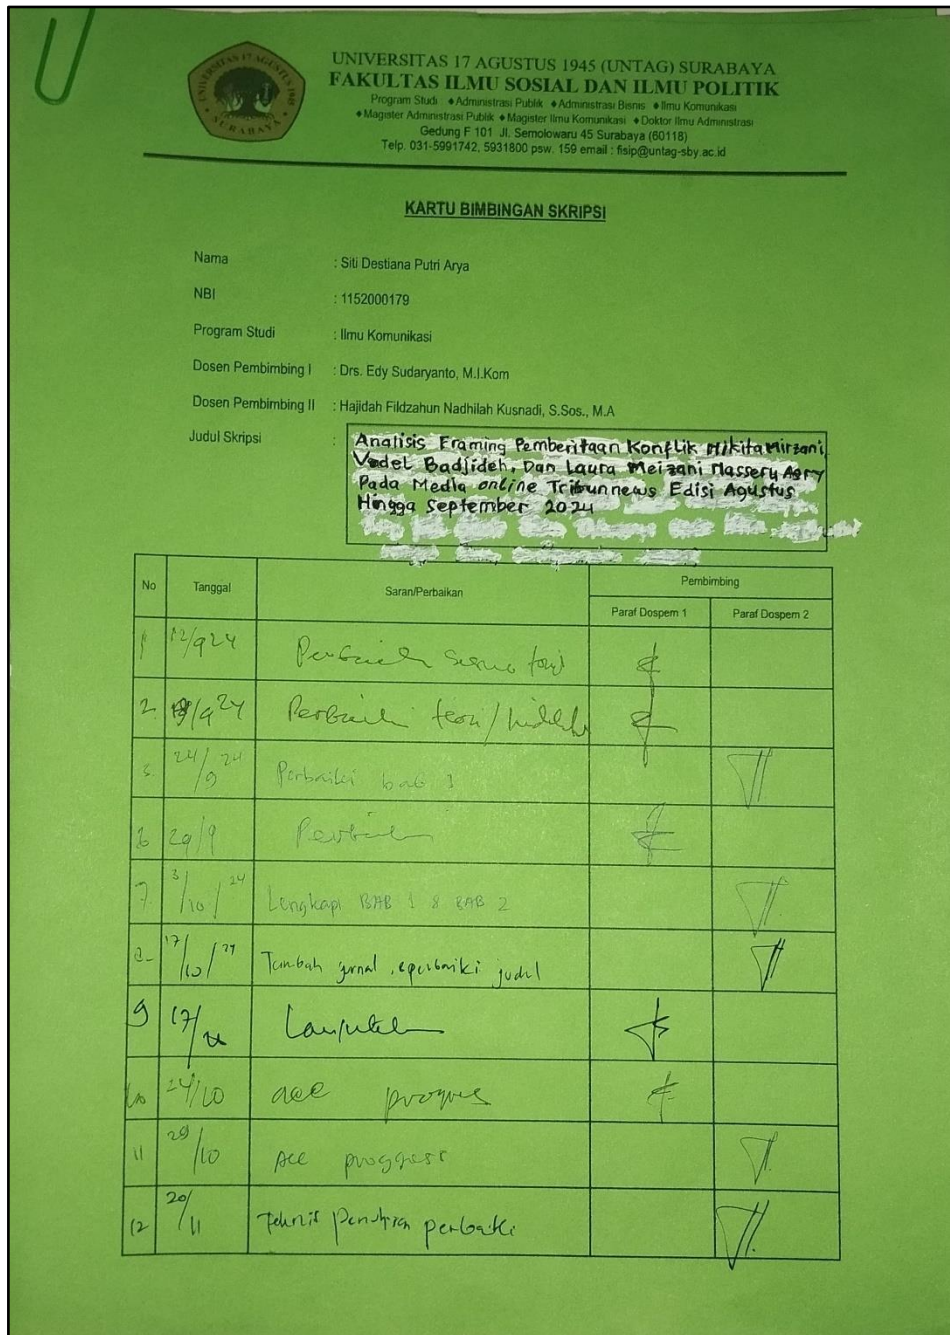 UNIVERSITAS 17 AGUSTUS 1945
SURABAYA
UNIVERSITAS 17 AGUSTUS 1945 (UNTAG) SURABAYA
FAKULTAS ILMU SOSIAL DAN ILMU POLITIK
Program Studi ♦Administrasi Publik ♦Administrasi Bisnis ♦Ilmu Komunikasi
♦Magister Administrasi Publik ♦Magister Ilmu Komunikasi ♦Doktor Ilmu Administrasi
Gedung F 101 Jl. Semolowaru 45 Surabaya (60118)
Telp. 031-5991742, 5931800 psw. 159 email : fisip@untag-sby.ac.id
KARTU BIMBINGAN SKRIPSI
Nama : Siti Destiana Putri Arya
NBI : 1152000179
Program Studi : Ilmu Komunikasi
Dosen Pembimbing I : Drs. Edy Sudaryanto, M.I.Kom
Dosen Pembimbing II : Hajidah Fildzahun Nadhilah Kusnadi, S.Sos., M.A
Judul Skripsi : Analisis Framing Pemberitaan Konflik Nikita Mirzani,
Vadel Badjideh, Dan Laura Meizani Nasseru Asry
Pada Media online Tribunnews Edisi Agustus
Hingga September 2024
No Tanggal Saran/Perbaikan Pembimbing
Paraf Dospem 1 Paraf Dospem 2
1 12/9 24
2. /9 24 Perbaiki teori/
24/9 24 Perbaiki bab 1
29/9
7. 3/10/24 Lengkapi BAB 1 & BAB 2
17/10/24 Tambah jurnal, perbaiki judul
9 17/ Lanjutkan
24/10 acc progres
11 29/10 Acc proggress
12 20/11 Teknis penulisan perbaiki